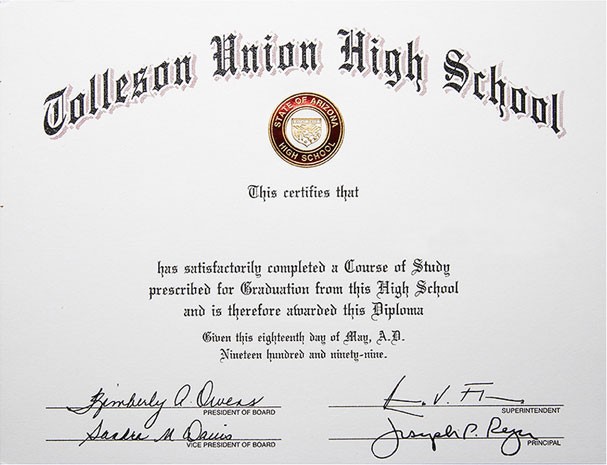 Tolleson Union High School
STATE OF ARIZONA
HIGH SCHOOL
This certifies that
has satisfactorily completed a Course of Study
prescribed for Graduation from this High School
and is therefore awarded this Diploma
Given this eighteenth day of May, A.D.
Nineteen hundred and ninety-nine.
Kimberly A. Owens
PRESIDENT OF BOARD
SUPERINTENDENT
Sandra M Davis
VICE PRESIDENT OF BOARD
Joseph P.
PRINCIPAL